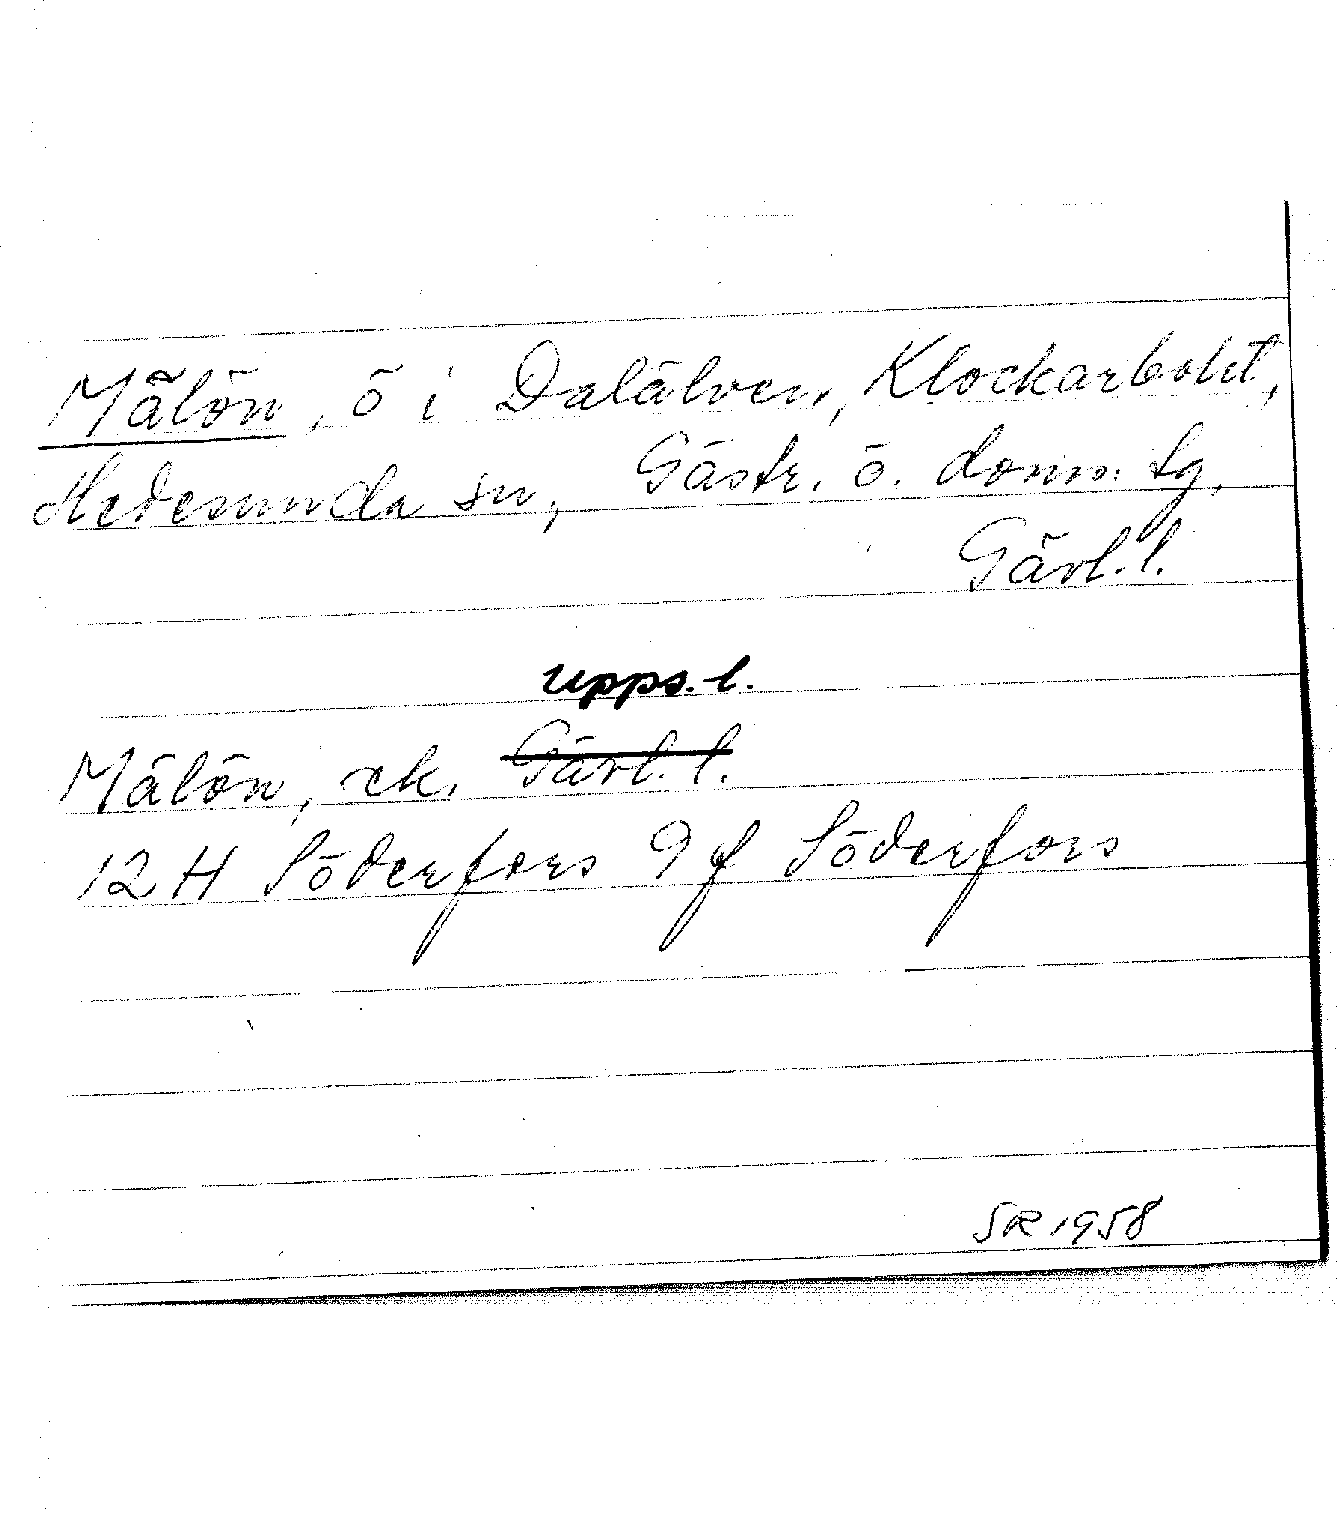 Mälön, ö i Dalälven, Klockarbolet,
Hedesunda sn, Gästr. ö. doms. tg,
Gävl. l.
Upps. l.
Mälön, ek. Gävl. l.
12 H Söderfors 9 f Söderfors
SR 1958